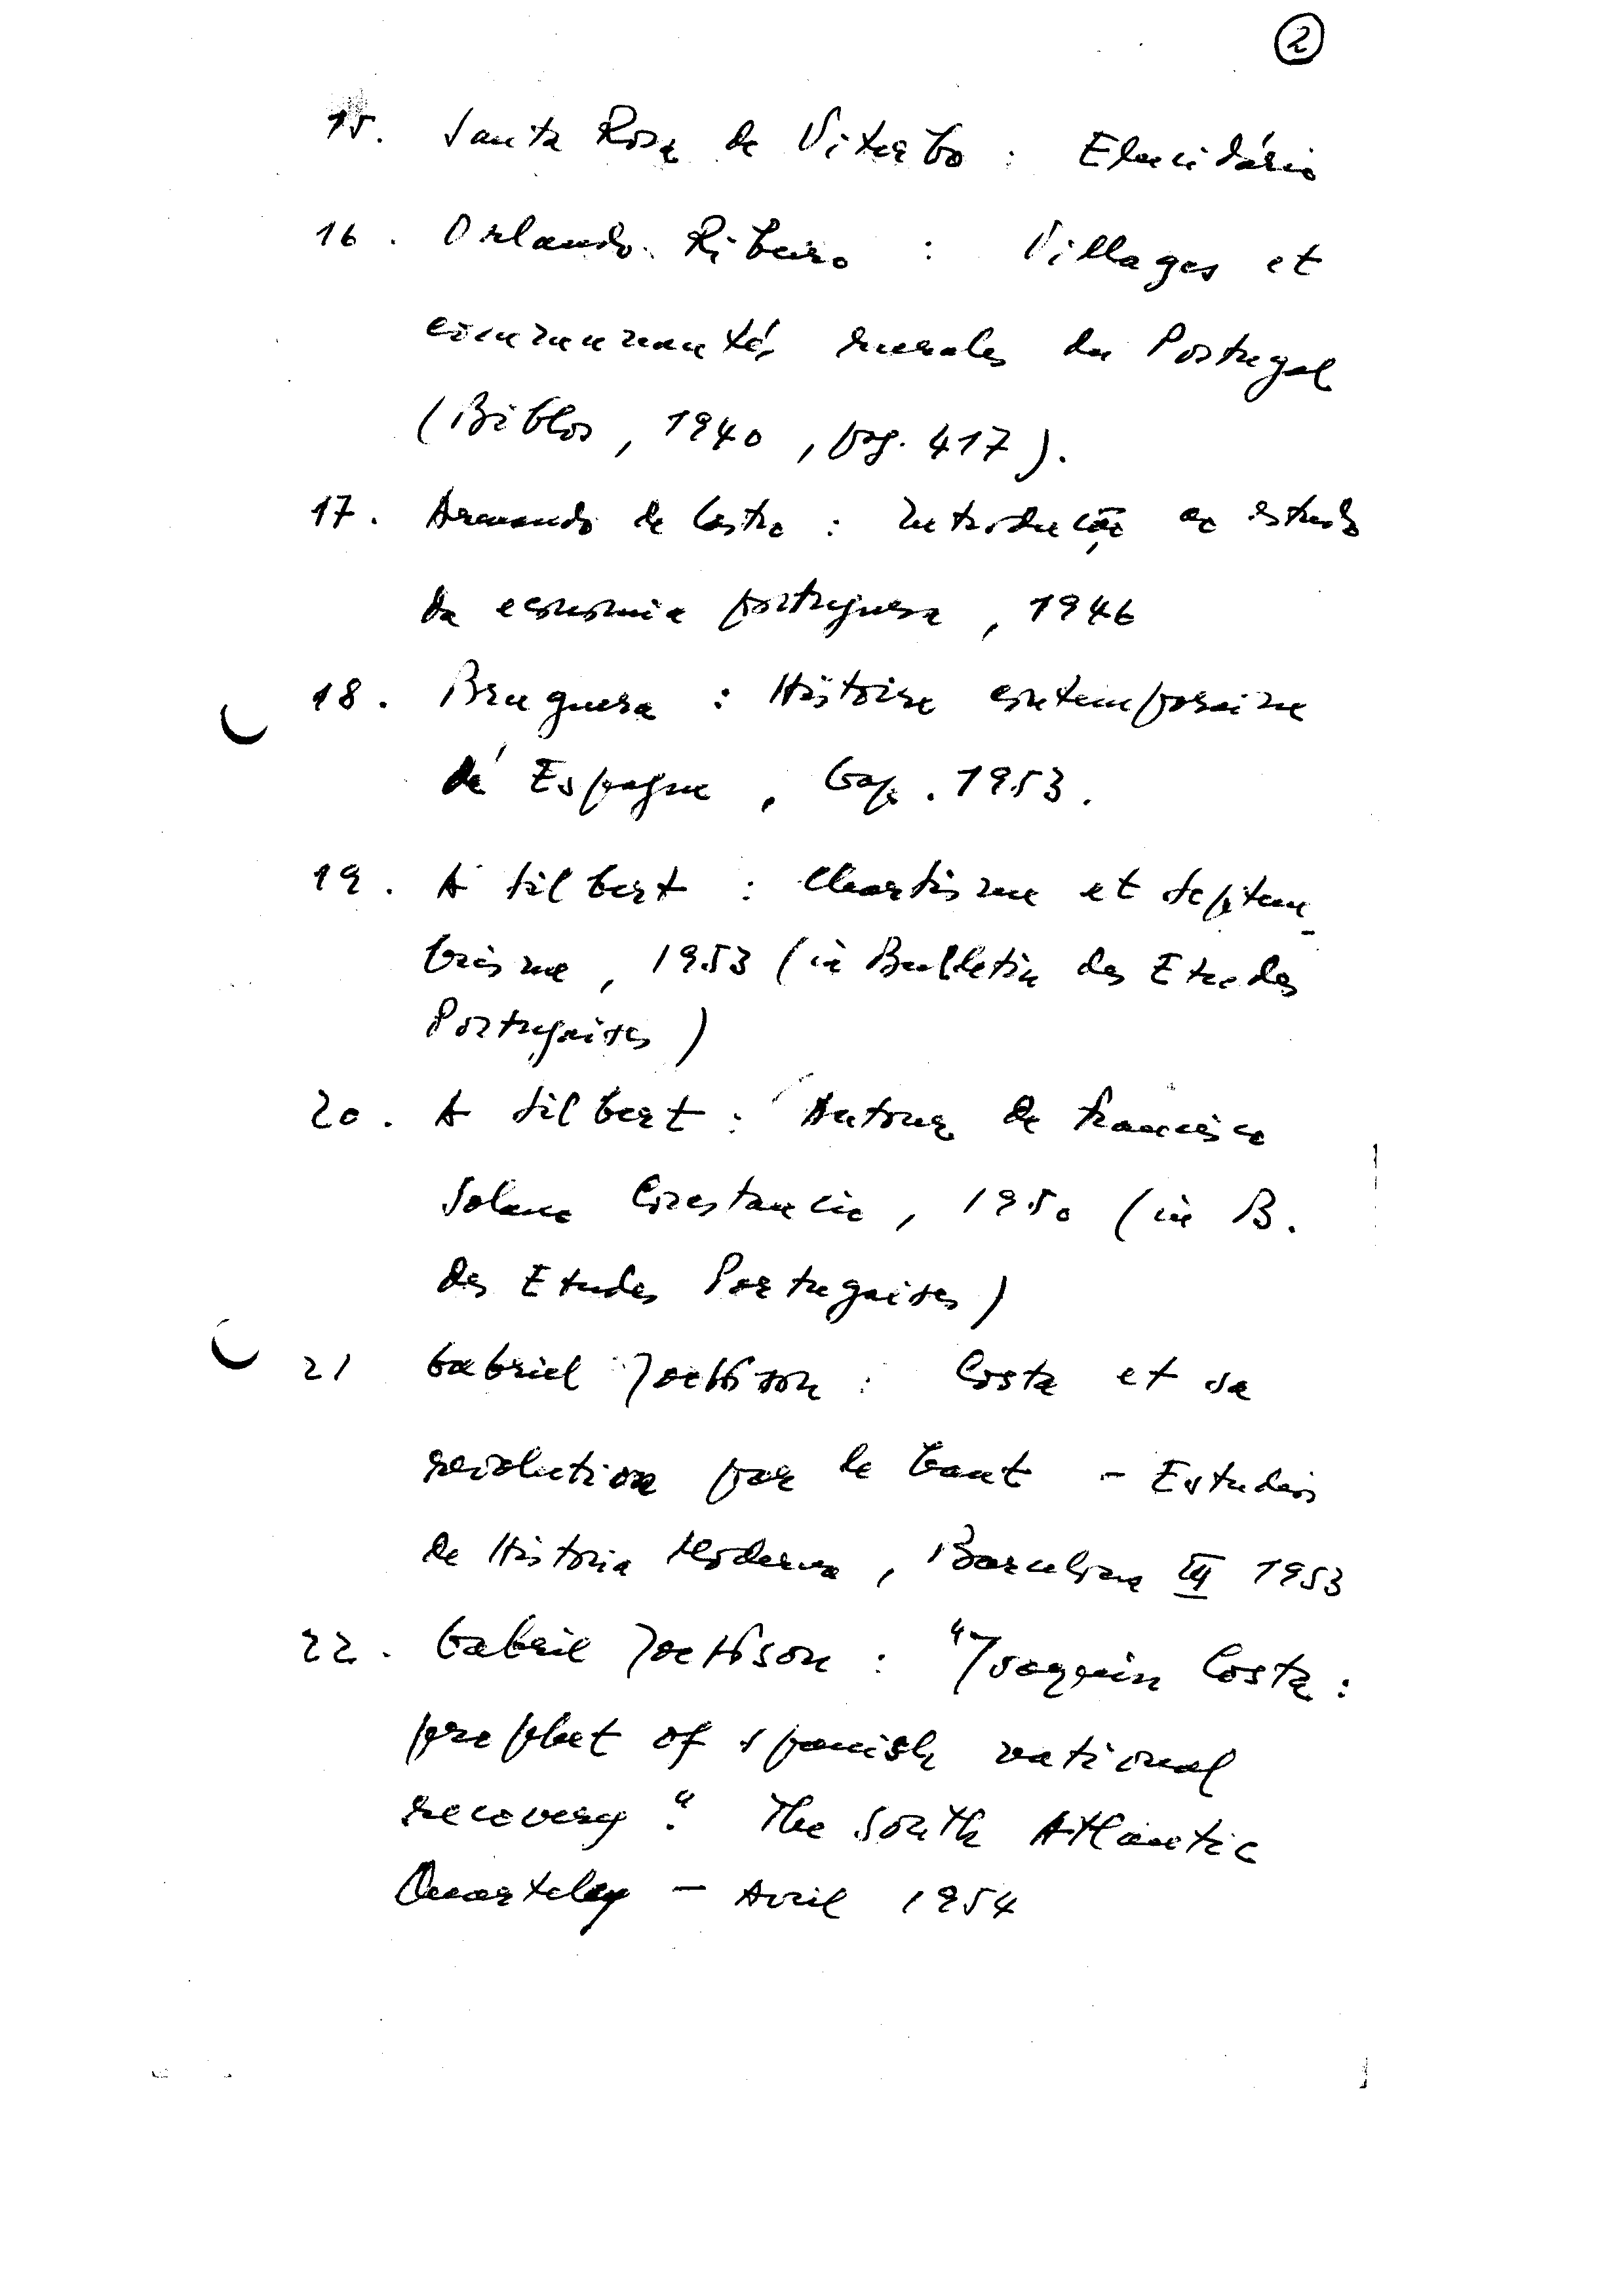 2
15. Santa Rosa de Viterbo : Elucidário
16. Orlando Ribeiro : Villages et
communautés rurales du Portugal
(Biblos, 1940, pag. 417).
17. Armando de Castro : Introdução ao estudo
da economia portuguesa, 1946
18. Bruguera : Histoire contemporaine
d'Espagne, 1953.
19. A Silbert : Chartisme et septem-
brisme, 1953 (in Bulletin des Etudes
Portugaises)
20. A Silbert : Autour de Francisco
Solano Constancio, 1950 (in B.
des Etudes Portugaises)
21 Gabriel Jackson : Costa et sa
revolution par le haut - Estudios
de Historia Moderna, Barcelona III 1953
22. Gabriel Jackson : "Joaquin Costa :
prophet of spanish national
recovery". The South Atlantic
Quarterly - Avril 1954